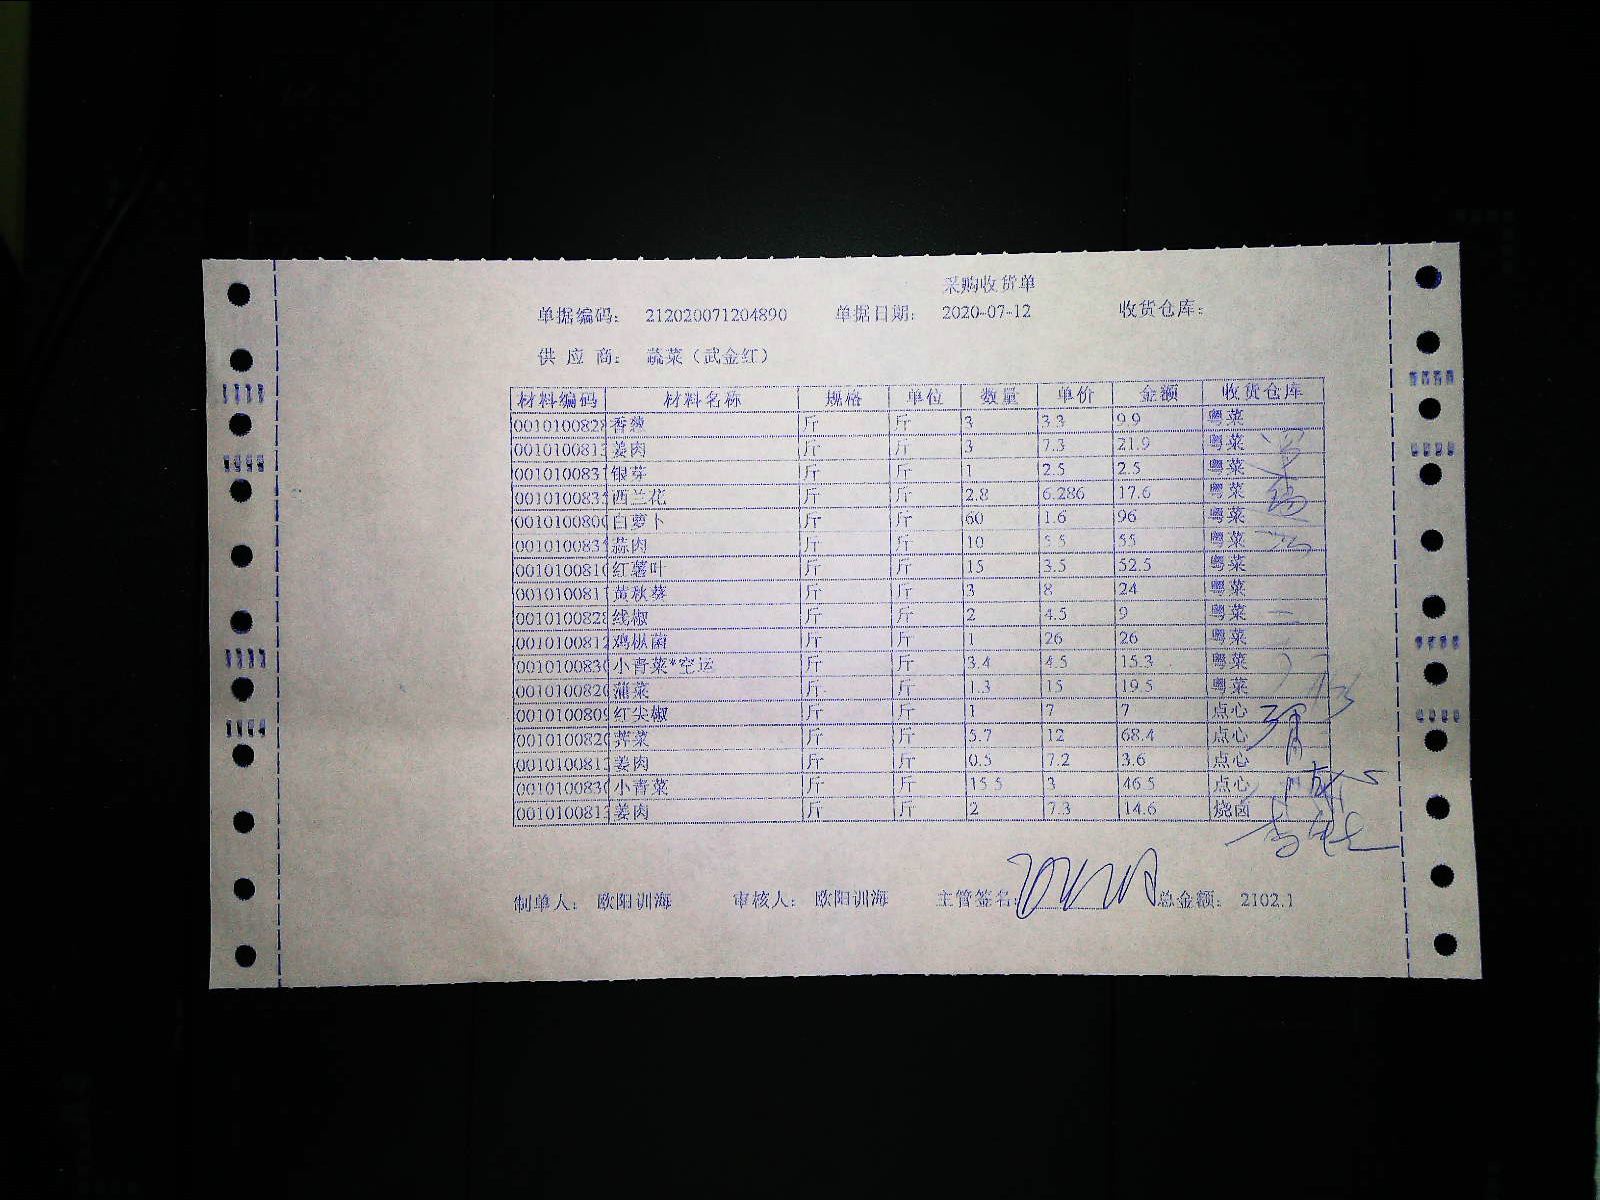 采购收货单
单据编码： 212020071204890 单据日期： 2020-07-12 收货仓库：
供 应 商： 蔬菜（武金红）
材料编码 材料名称 规格 单位 数量 单价 金额 收货仓库
0010100828 香葱 斤 斤 3 3.3 9.9 粤菜
001010081 姜肉 斤 斤 3 7.3 21.9 粤菜
001010083 银芽 斤 斤 1 2.5 2.5 粤菜
001010083 西兰花 斤 斤 2.8 6.286 17.6 粤菜
001010080 白萝卜 斤 斤 60 1.6 96 粤菜
001010083 蒜肉 斤 斤 10 5.5 55 粤菜
001010081 红薯叶 斤 斤 15 3.5 52.5 粤菜
001010081 黄秋葵 斤 斤 3 8 24 粤菜
001010082 线椒 斤 斤 2 4.5 9 粤菜
001010081 鸡枞菌 斤 斤 1 26 26 粤菜
001010083 小青菜*空运 斤 斤 3.4 4.5 15.3 粤菜
001010082 蒲菜 斤 斤 1.3 15 19.5 粤菜
001010080 红尖椒 斤 斤 1 7 7 点心
001010082 荠菜 斤 斤 5.7 12 68.4 点心
001010081 姜肉 斤 斤 0.5 7.2 3.6 点心
001010083 小青菜 斤 斤 15.5 3 46.5 点心
001010081 姜肉 斤 斤 2 7.3 14.6 烧卤
制单人： 欧阳训海 审核人： 欧阳训海 主管签名： 总金额： 2102.1